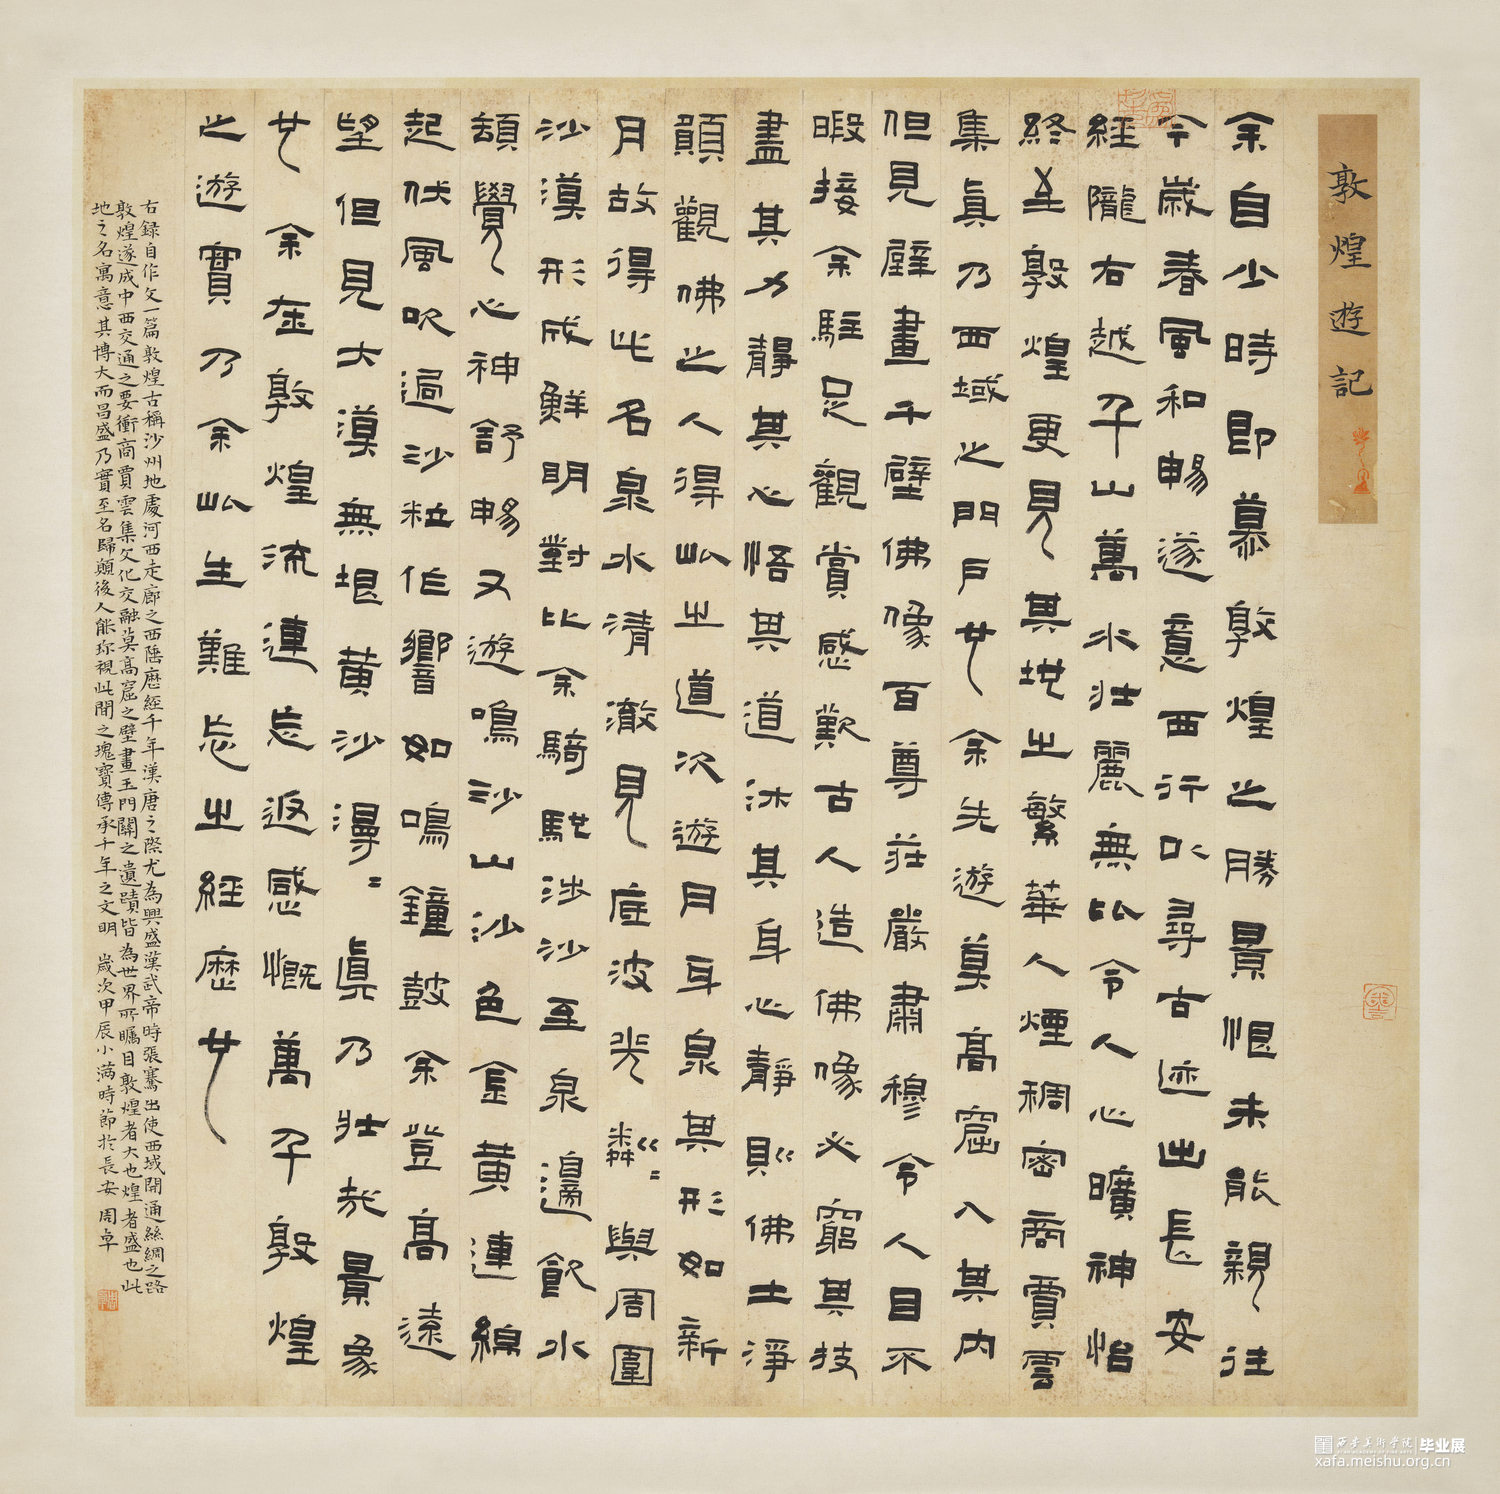 敦煌遊記
余自少時即慕敦煌之勝景恨未能親往
今歲春風和暢遂意西行以尋古迹出長安
經隴右越千山萬水壯麗無比令人心曠神怡
終至敦煌更見其地之繁華人煙稠密商賈雲
集真乃西域之門戶也余先遊莫高窟入其內
但見壁畫千壁佛像百尊莊嚴肅穆令人目不
暇接余駐足觀賞感歎古人造佛像必窮其技
盡其力靜其心悟其道沐其身心靜則佛土淨
顯觀佛之人得此之道次遊月牙泉其形如新
月故得此名泉水清澈見底波光粼〻與周圍
沙漠形成鮮明對比余騎駝涉沙至泉邊飲水
頡覺心神舒暢又遊鳴沙山沙色金黃連綿
起伏風吹過沙粒作響如鳴鐘鼓余登高遠
望但見大漠無垠黃沙漫〻真乃壯哉景象
也余在敦煌流連忘返感慨萬千敦煌
之遊實乃余此生難忘之經歷也
右錄自作文一篇敦煌古稱沙州地處河西走廊之西陲歷經千年漢唐之際尤為興盛漢武帝時張騫出使西域開通絲綢之路
敦煌遂成中西交通之要衝商賈雲集文化交融莫高窟之壁畫玉門關之遺蹟皆為世界所矚目敦煌者大也煌者盛也此
地之名寓意其博大而昌盛乃實至名歸願後人能珍視此間之瑰寶傳承千年之文明 歲次甲辰小滿時節於長安 周卓
西安美術學院 毕业展
xafa.meishu.org.cn